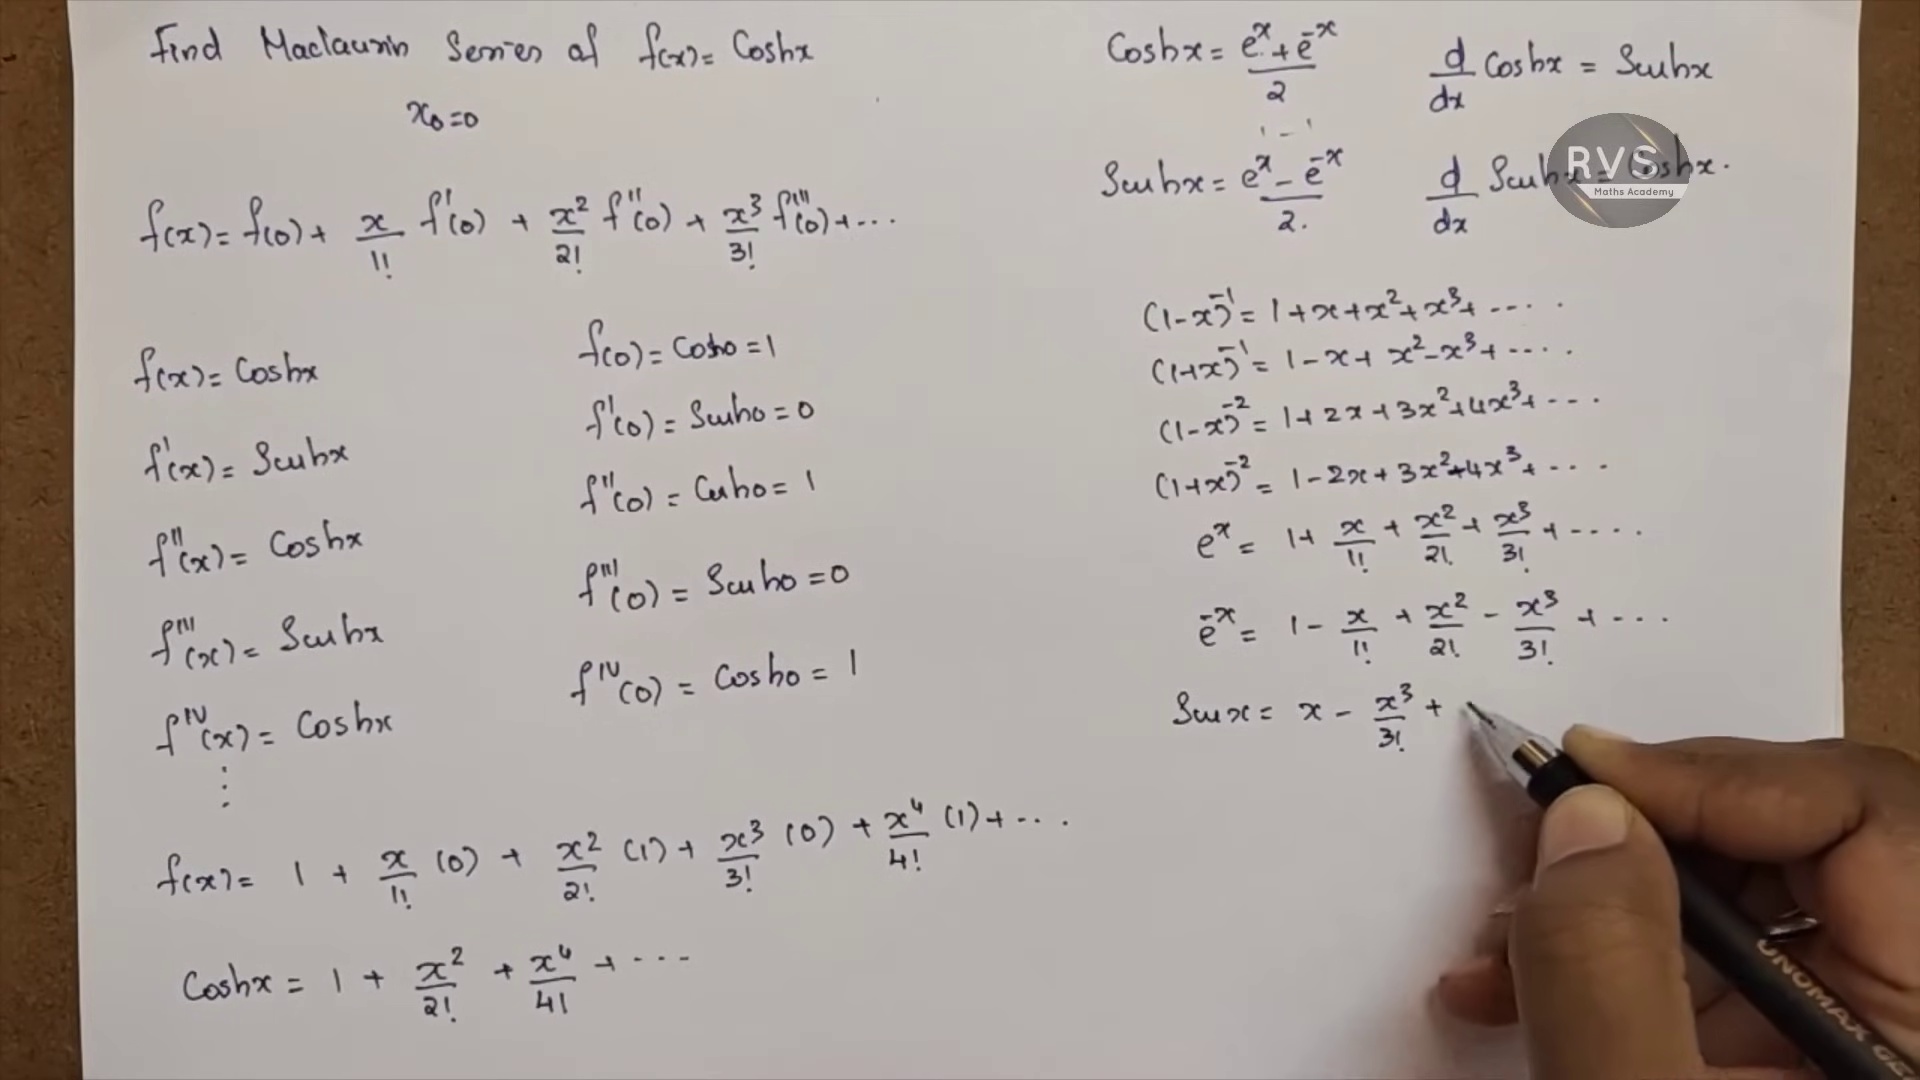 Find Maclaurin Series of f(x) = Coshx
x₀=0
f(x) = f(0) + x/1! f'(0) + x²/2! f''(0) + x³/3! f'''(0) + ...
f(x) = Coshx
f(0) = Cosh0 = 1
f'(x) = Sinhx
f'(0) = Sinh0 = 0
f''(x) = Coshx
f''(0) = Cosh0 = 1
f'''(x) = Sinhx
f'''(0) = Sinh0 = 0
f^IV(x) = Coshx
f^IV(0) = Cosh0 = 1
⋮
f(x) = 1 + x/1! (0) + x²/2! (1) + x³/3! (0) + x⁴/4! (1) + ...
Coshx = 1 + x²/2! + x⁴/4! + ...
Coshx = (eˣ + e⁻ˣ)/2
d/dx Coshx = Sinhx
1 - 1
Sinhx = (eˣ - e⁻ˣ)/2.
d/dx Sinhx = Coshx.
RVS
Maths Academy
(1-x)⁻¹ = 1 + x + x² + x³ + ....
(1+x)⁻¹ = 1 - x + x² - x³ + ....
(1-x)⁻² = 1 + 2x + 3x² + 4x³ + ...
(1+x)⁻² = 1 - 2x + 3x² - 4x³ + ...
eˣ = 1 + x/1! + x²/2! + x³/3! + ....
e⁻ˣ = 1 - x/1! + x²/2! - x³/3! + ...
Sinx = x - x³/3! +
UNOMAX